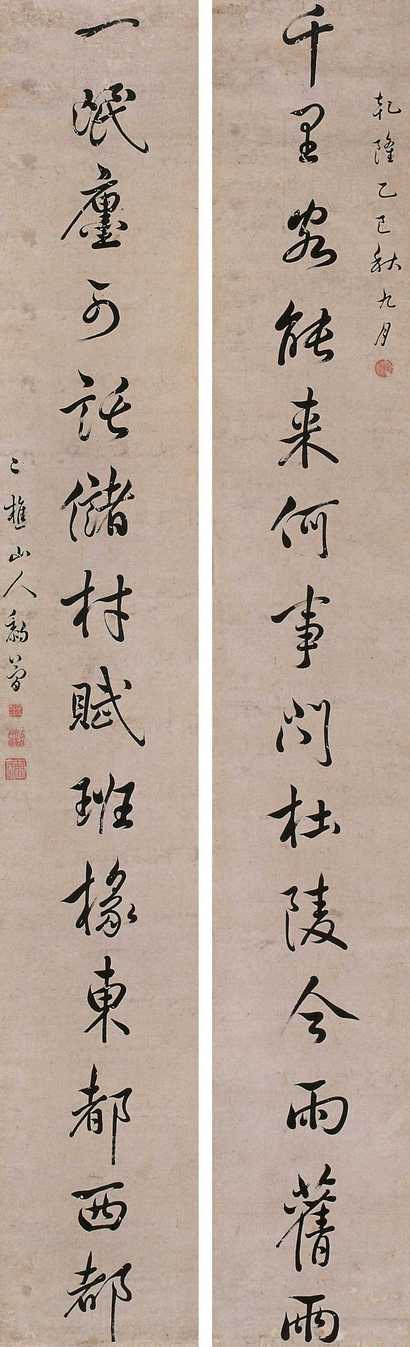 千里客能来何事問杜陵今雨舊雨
乾隆乙巳秋九月
一氓廛可託儲材賦班椽東都西都
二樵山人黎簡